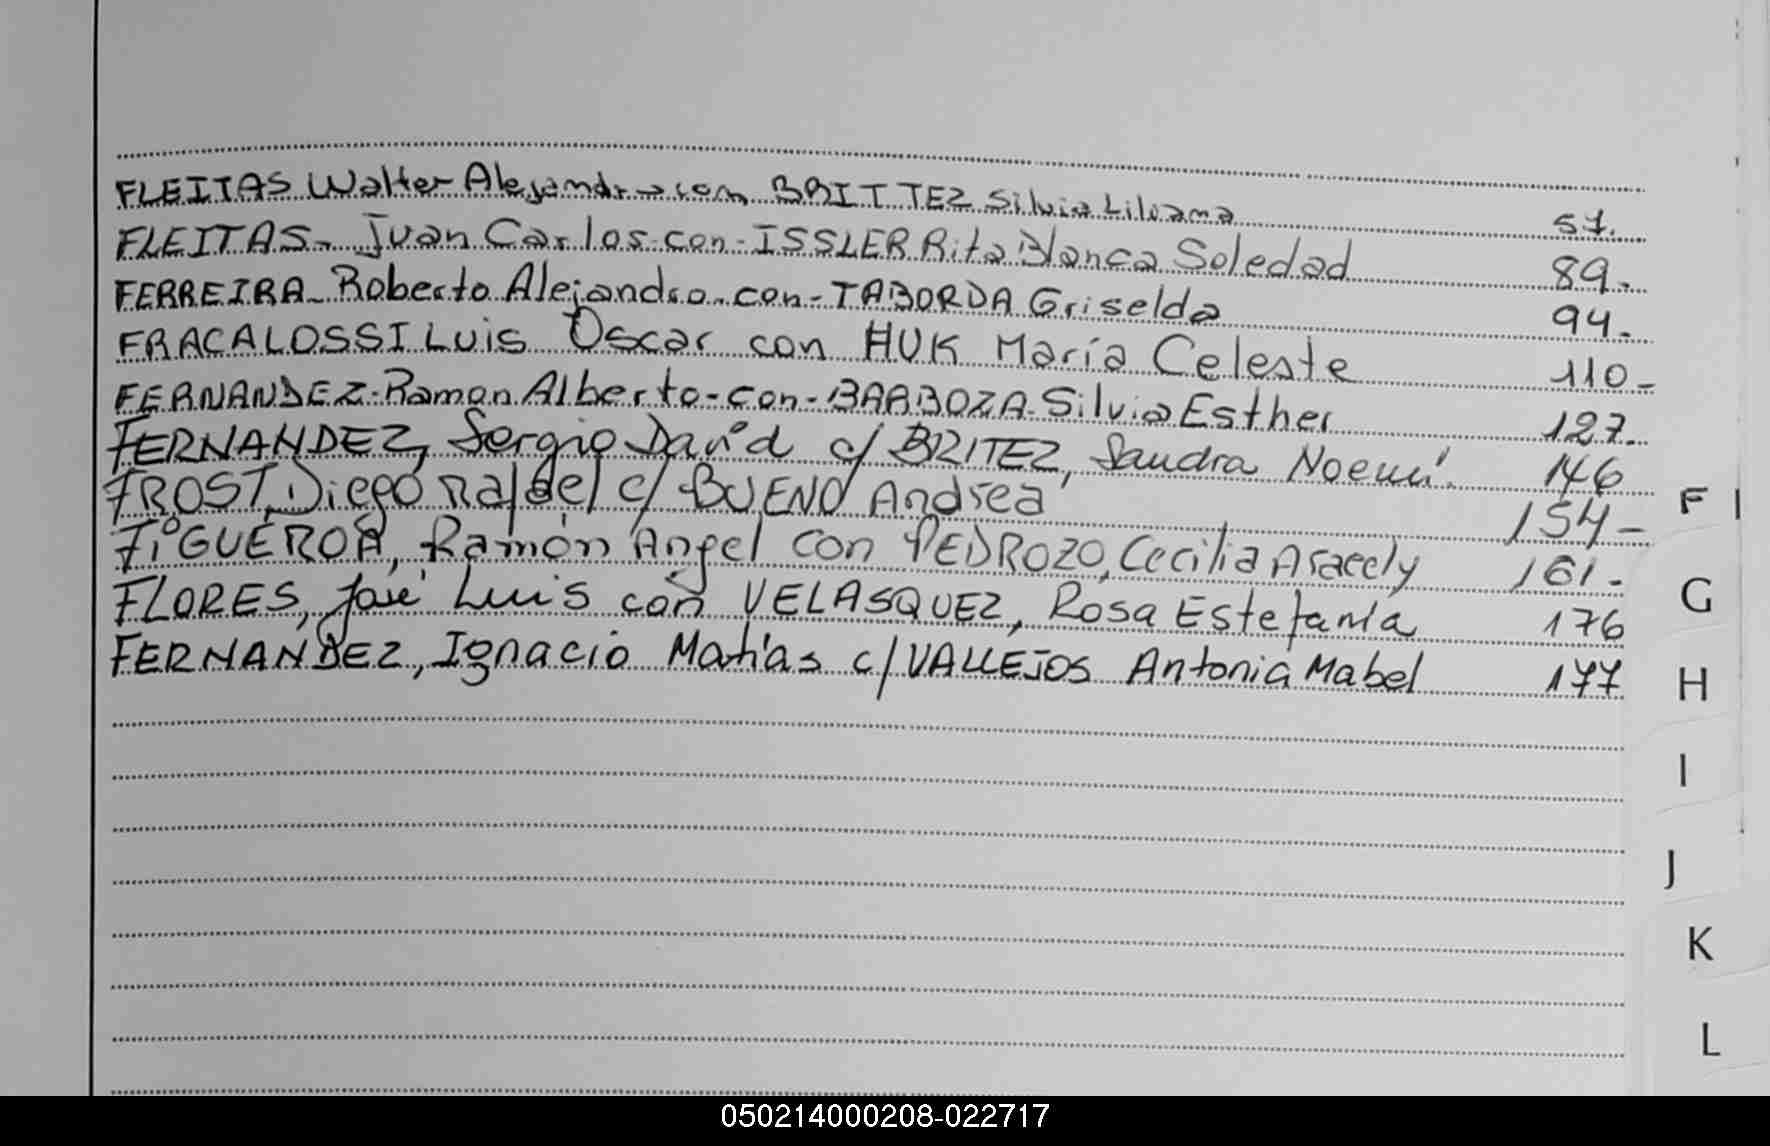 FLEITAS Walter Alejandro con BRITTEZ Silvia Liliana 57.
FLEITAS- Juan Carlos-con-ISSLER Rita Blanca Soledad 89.
FERREIRA- Roberto Alejandro-con-TABORDA Griselda 94.
FRACALOSSI Luis Oscar con HUK María Celeste 110-
FERNANDEZ-Ramon Alberto-con-BARBOZA-Silvia Esther 127.
FERNANDEZ, Sergio David c/ BRITEZ, Sandra Noemí. 146
FROST, Diego Rafael c/ BUENO Andrea 154-
FiGUEROA, Ramón Angel con PEDROZO, Cecilia Aracely 161.
FLORES, José Luis con VELASQUEZ, Rosa Estefanía 176
FERNANDEZ, Ignacio Matías c/ VALLEJOS Antonia Mabel 177
F
G
H
I
J
K
L
050214000208-022717